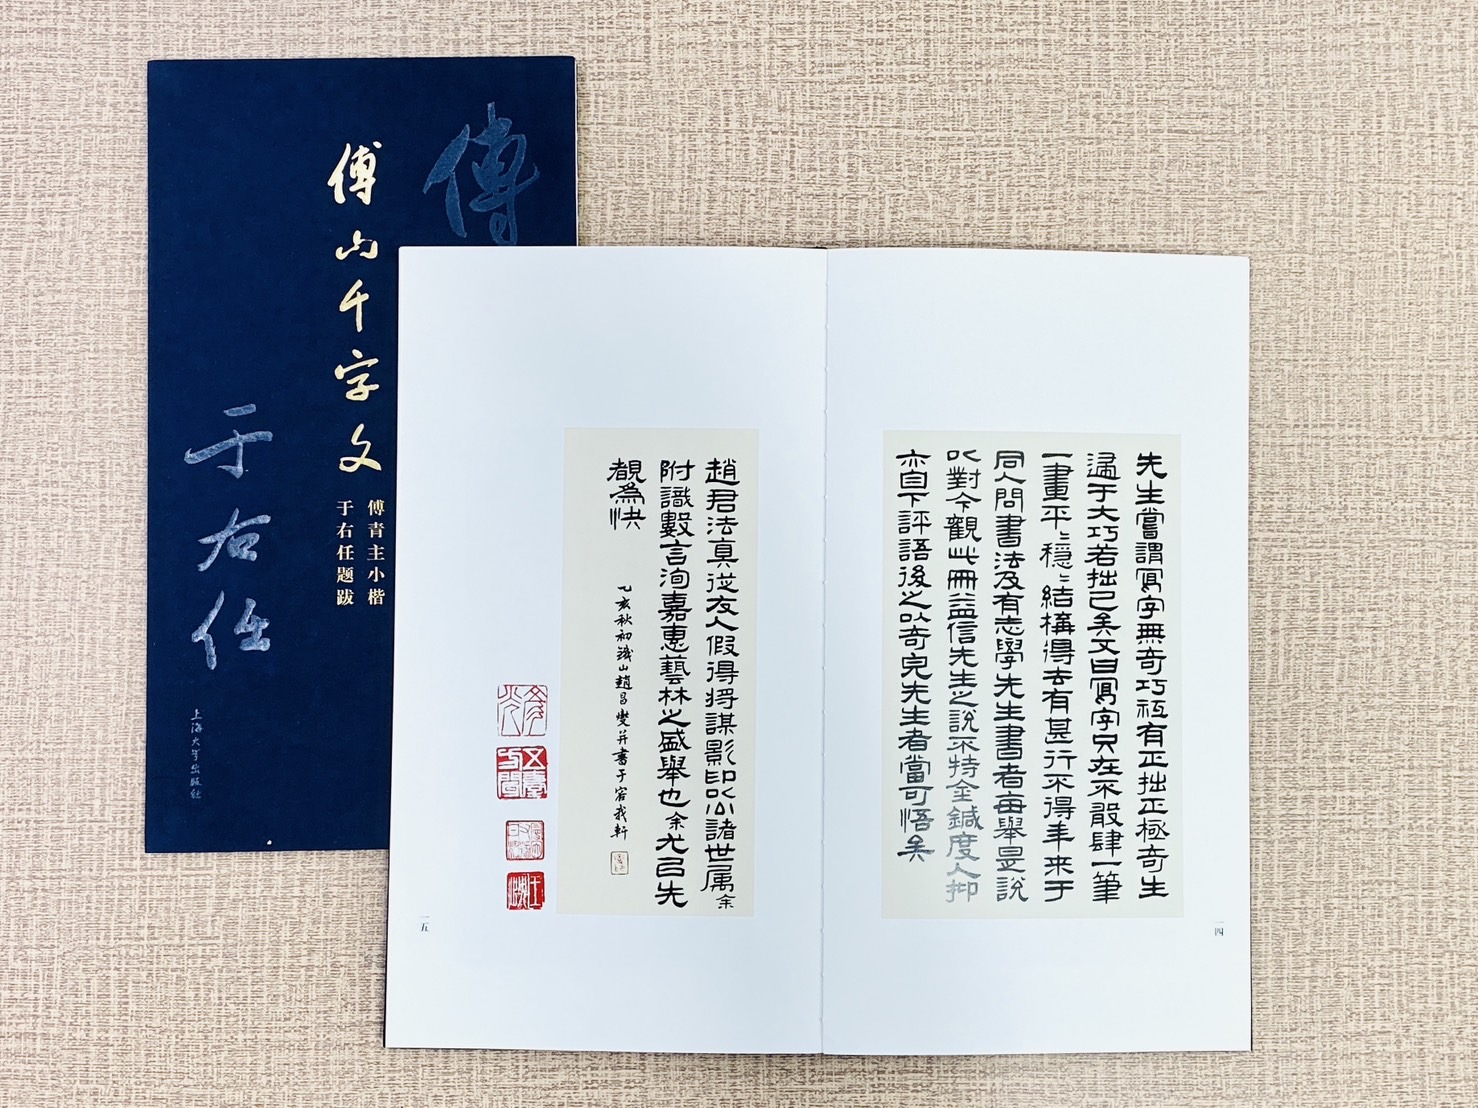 傅
傅山千字文
傅青主小楷
于右任题跋
于右任
上海大学出版社
先生嘗謂寫字無奇巧祗有正拙正極奇生
歸于大巧若拙已矣又曰寫字只在不放肆一筆
一畫平〻穩〻結構得去有甚行不得年來于
同人問書法及有志學先生書者每舉是說
以對今觀此冊益信先生之說不特金鍼度人抑
亦自下評語後之以奇先生者當可悟矣
一四
趙君法真從友人假得將謀影印以公諸世属余
附識數言洵嘉惠藝林之盛舉也余尤以先
覩為快
乙亥秋初鐵山趙昌燮并書于容我軒
一五